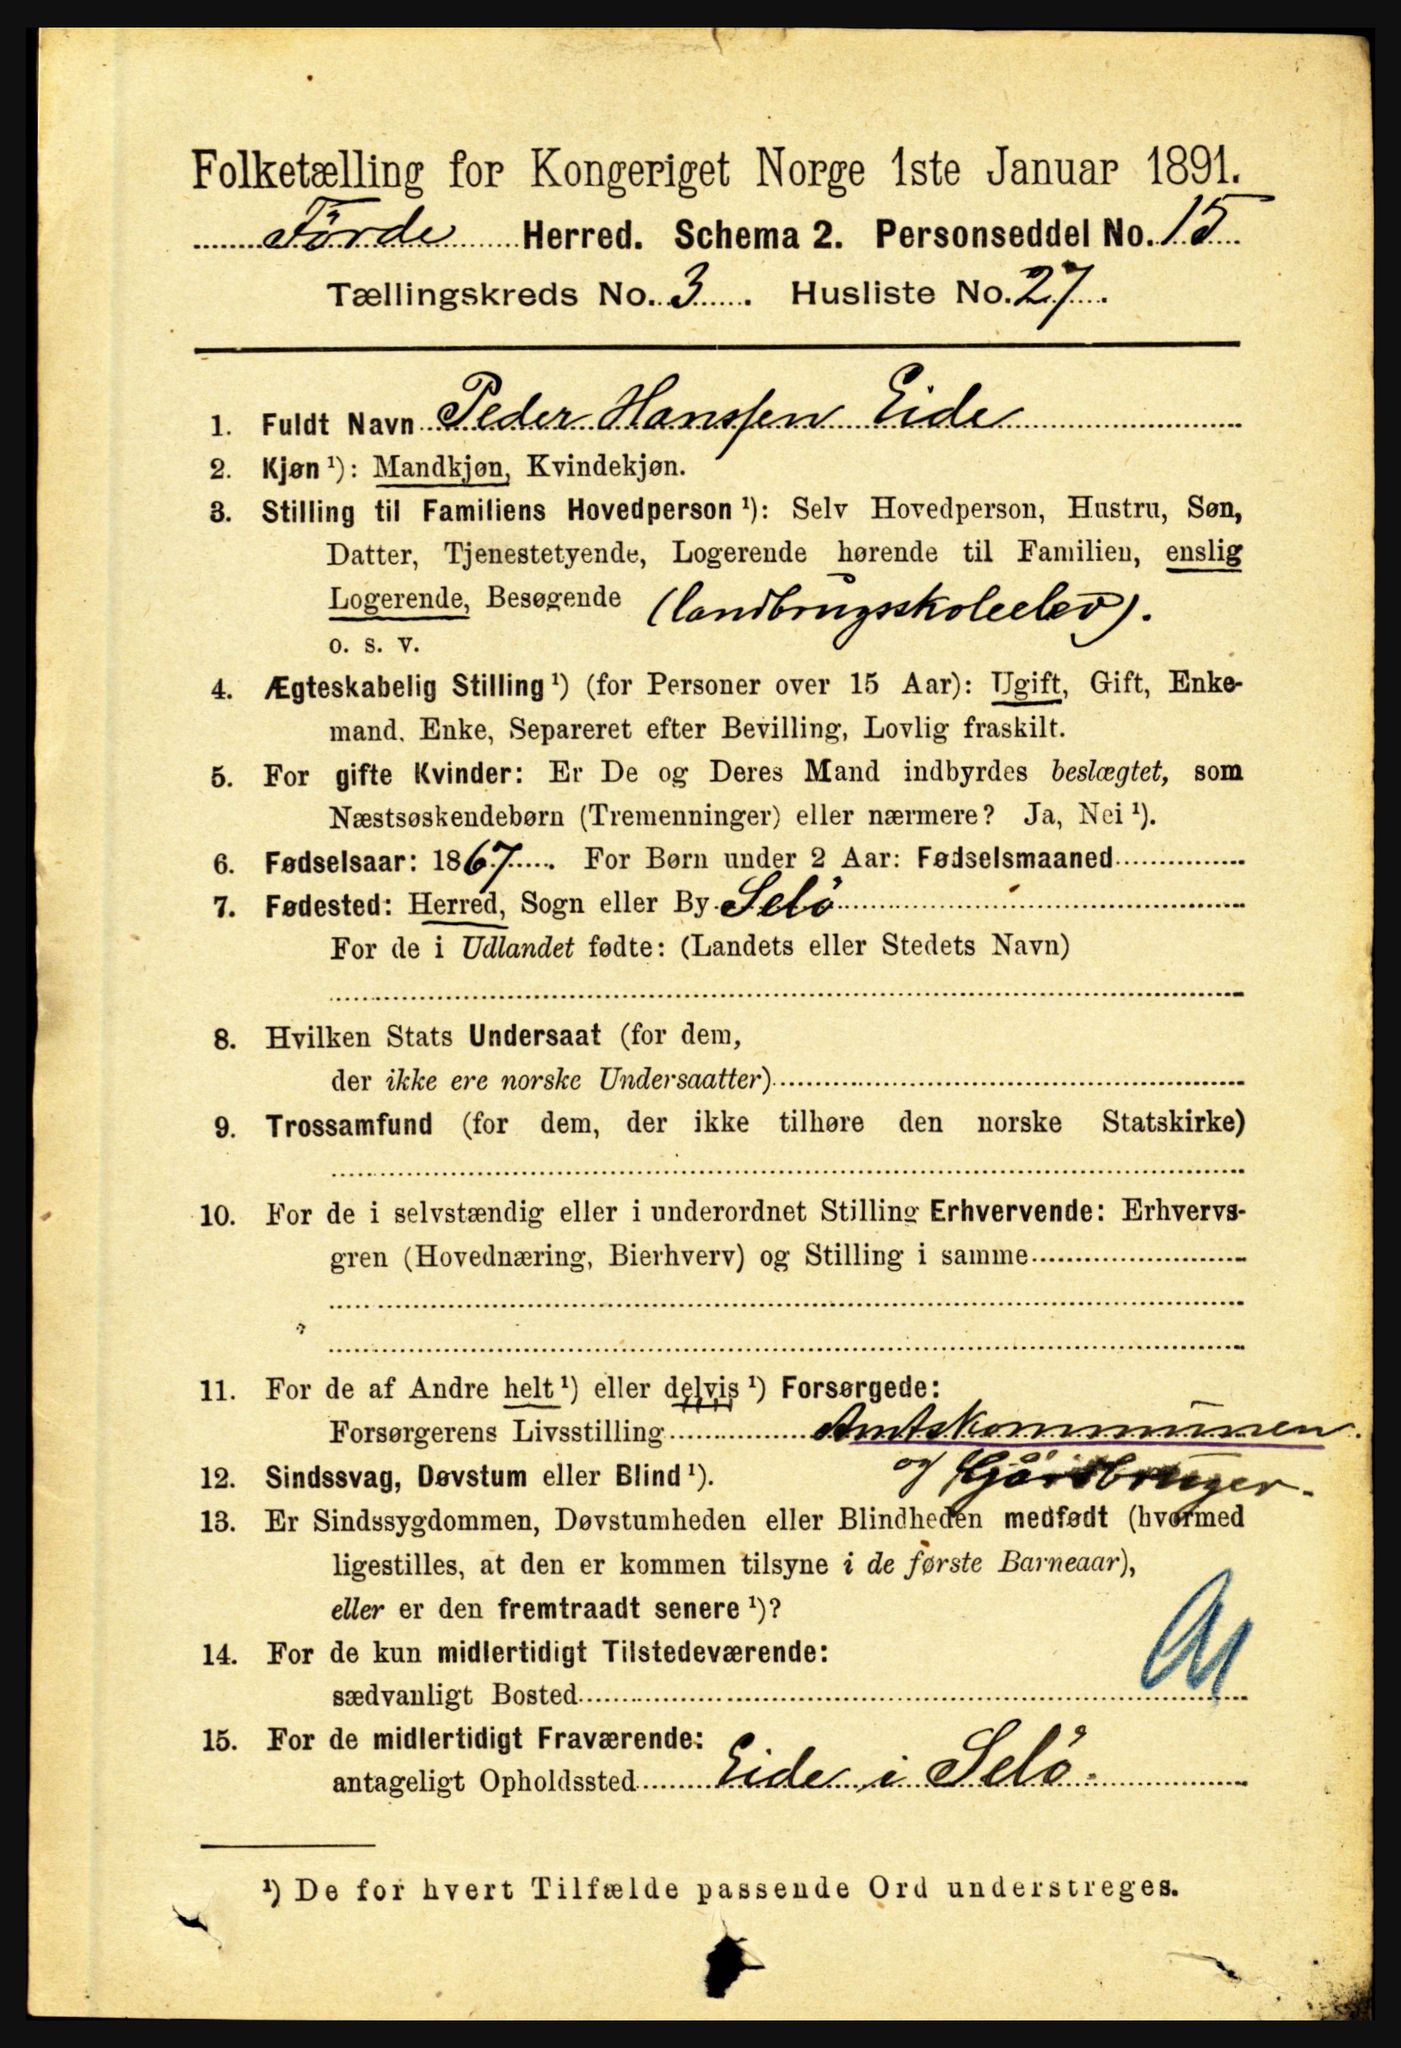 Folketælling for Kongeriget Norge 1ste Januar 1891.
Förde Herred. Schema 2. Personseddel No. 15
Tællingskreds No. 3. Husliste No. 27.
1. Fuldt Navn Peder Hanssen Eide
2. Kjøn ¹): Mandkjøn, Kvindekjøn.
3. Stilling til Familiens Hovedperson ¹): Selv Hovedperson, Hustru, Søn,
Datter, Tjenestetyende, Logerende hørende til Familien, enslig
Logerende, Besøgende (landbrugsskoleelev).
o. s. v.
4. Ægteskabelig Stilling ¹) (for Personer over 15 Aar): Ugift, Gift, Enke-
mand, Enke, Separeret efter Bevilling, Lovlig fraskilt.
5. For gifte Kvinder: Er De og Deres Mand indbyrdes beslægtet, som
Næstsøskendebørn (Tremenninger) eller nærmere? Ja, Nei ¹).
6. Fødselsaar: 1867. For Børn under 2 Aar: Fødselsmaaned
7. Fødested: Herred, Sogn eller By Selö
For de i Udlandet fødte: (Landets eller Stedets Navn)
8. Hvilken Stats Undersaat (for dem,
der ikke ere norske Undersaatter)
9. Trossamfund (for dem, der ikke tilhøre den norske Statskirke)
10. For de i selvstændig eller i underordnet Stilling Erhvervende: Erhvervs-
gren (Hovednæring, Bierhverv) og Stilling i samme
11. For de af Andre helt ¹) eller delvis ¹) Forsørgede:
Forsørgerens Livsstilling Amtskommunen
og Gårdbruger.
12. Sindssvag, Døvstum eller Blind ¹).
13. Er Sindssygdommen, Døvstumheden eller Blindheden medfødt (hvormed
ligestilles, at den er kommen tilsyne i de første Barneaar),
eller er den fremtraadt senere ¹)?
14. For de kun midlertidigt Tilstedeværende:
sædvanligt Bosted
15. For de midlertidigt Fraværende:
antageligt Opholdssted Eide i Selö.
¹) De for hvert Tilfælde passende Ord understreges.